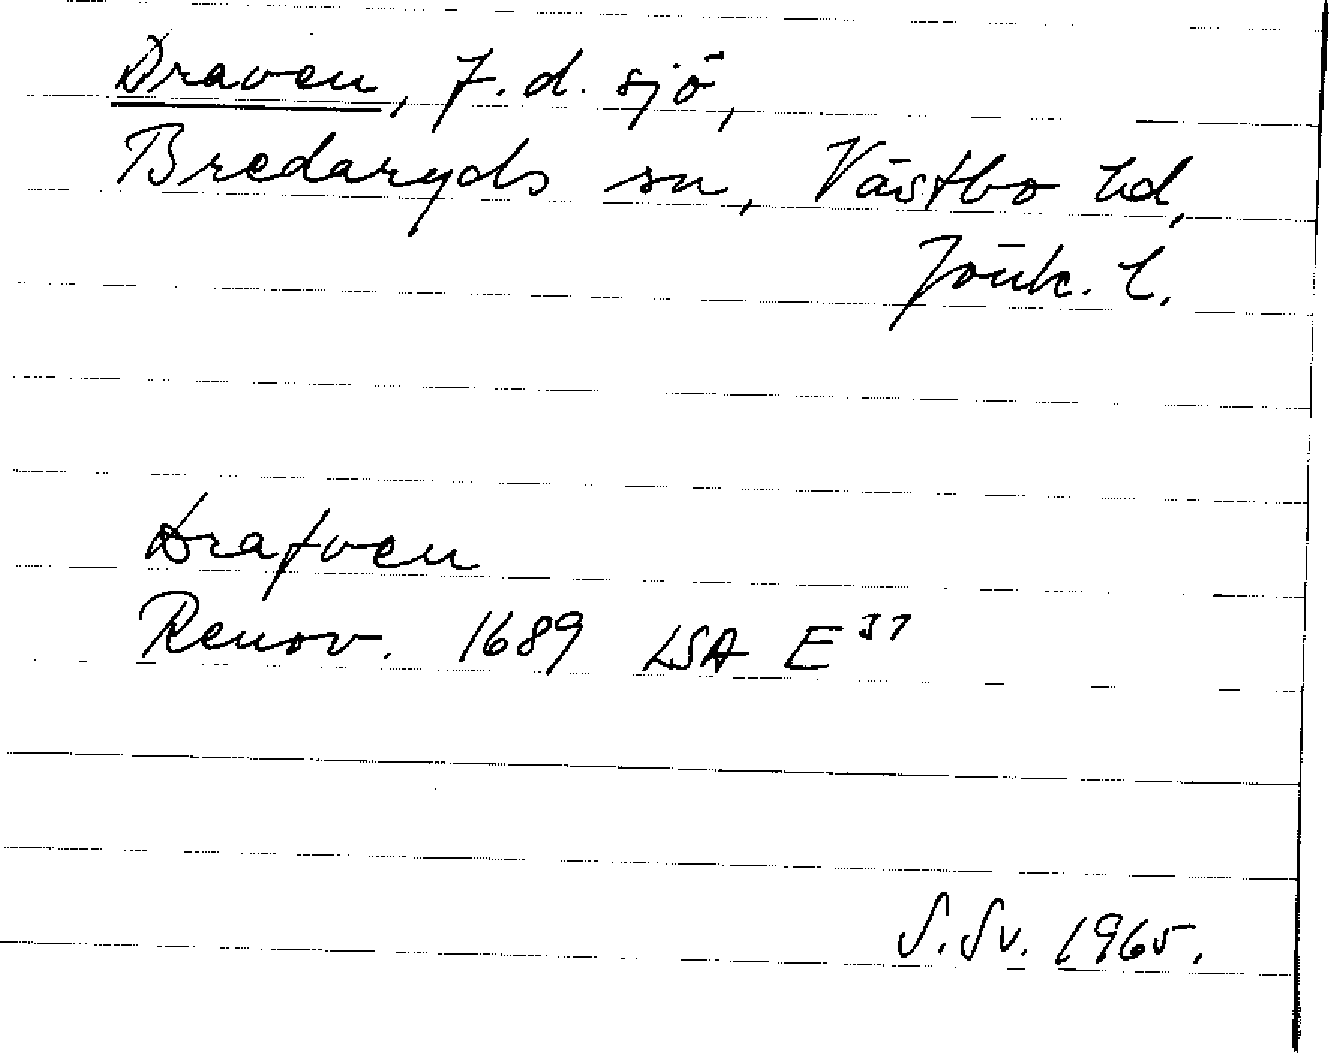 Draven, f.d. sjö,
Bredaryds sn, Västbo hd,
Jönk. l.
Drafven
Renov. 1689 LSA E 37
S.Sv. 1965.